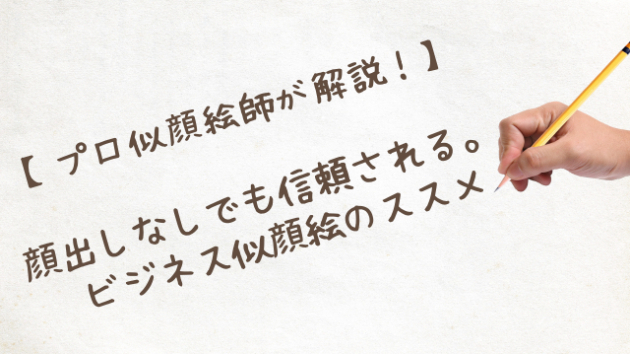 【 プロ似顔絵師が解説！】
顔出しなしでも信頼される。
ビジネス似顔絵のススメ